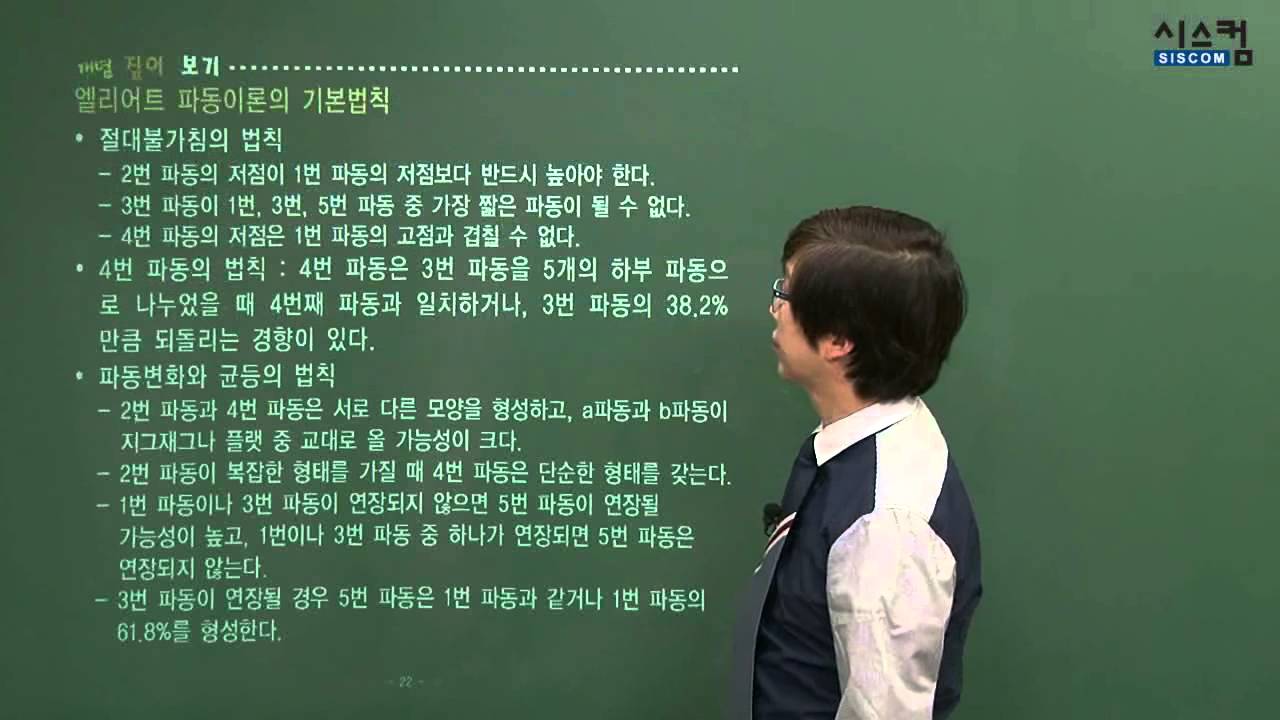 시스컴
SISCOM
개념 짚어 보기
엘리어트 파동이론의 기본법칙
• 절대불가침의 법칙
– 2번 파동의 저점이 1번 파동의 저점보다 반드시 높아야 한다.
– 3번 파동이 1번, 3번, 5번 파동 중 가장 짧은 파동이 될 수 없다.
– 4번 파동의 저점은 1번 파동의 고점과 겹칠 수 없다.
• 4번 파동의 법칙 : 4번 파동은 3번 파동을 5개의 하부 파동으
로 나누었을 때 4번째 파동과 일치하거나, 3번 파동의 38.2%
만큼 되돌리는 경향이 있다.
• 파동변화와 균등의 법칙
– 2번 파동과 4번 파동은 서로 다른 모양을 형성하고, a파동과 b파동이
지그재그나 플랫 중 교대로 올 가능성이 크다.
– 2번 파동이 복잡한 형태를 가질 때 4번 파동은 단순한 형태를 갖는다.
– 1번 파동이나 3번 파동이 연장되지 않으면 5번 파동이 연장될
가능성이 높고, 1번이나 3번 파동 중 하나가 연장되면 5번 파동은
연장되지 않는다.
– 3번 파동이 연장될 경우 5번 파동은 1번 파동과 같거나 1번 파동의
61.8%를 형성한다.
- 22 -